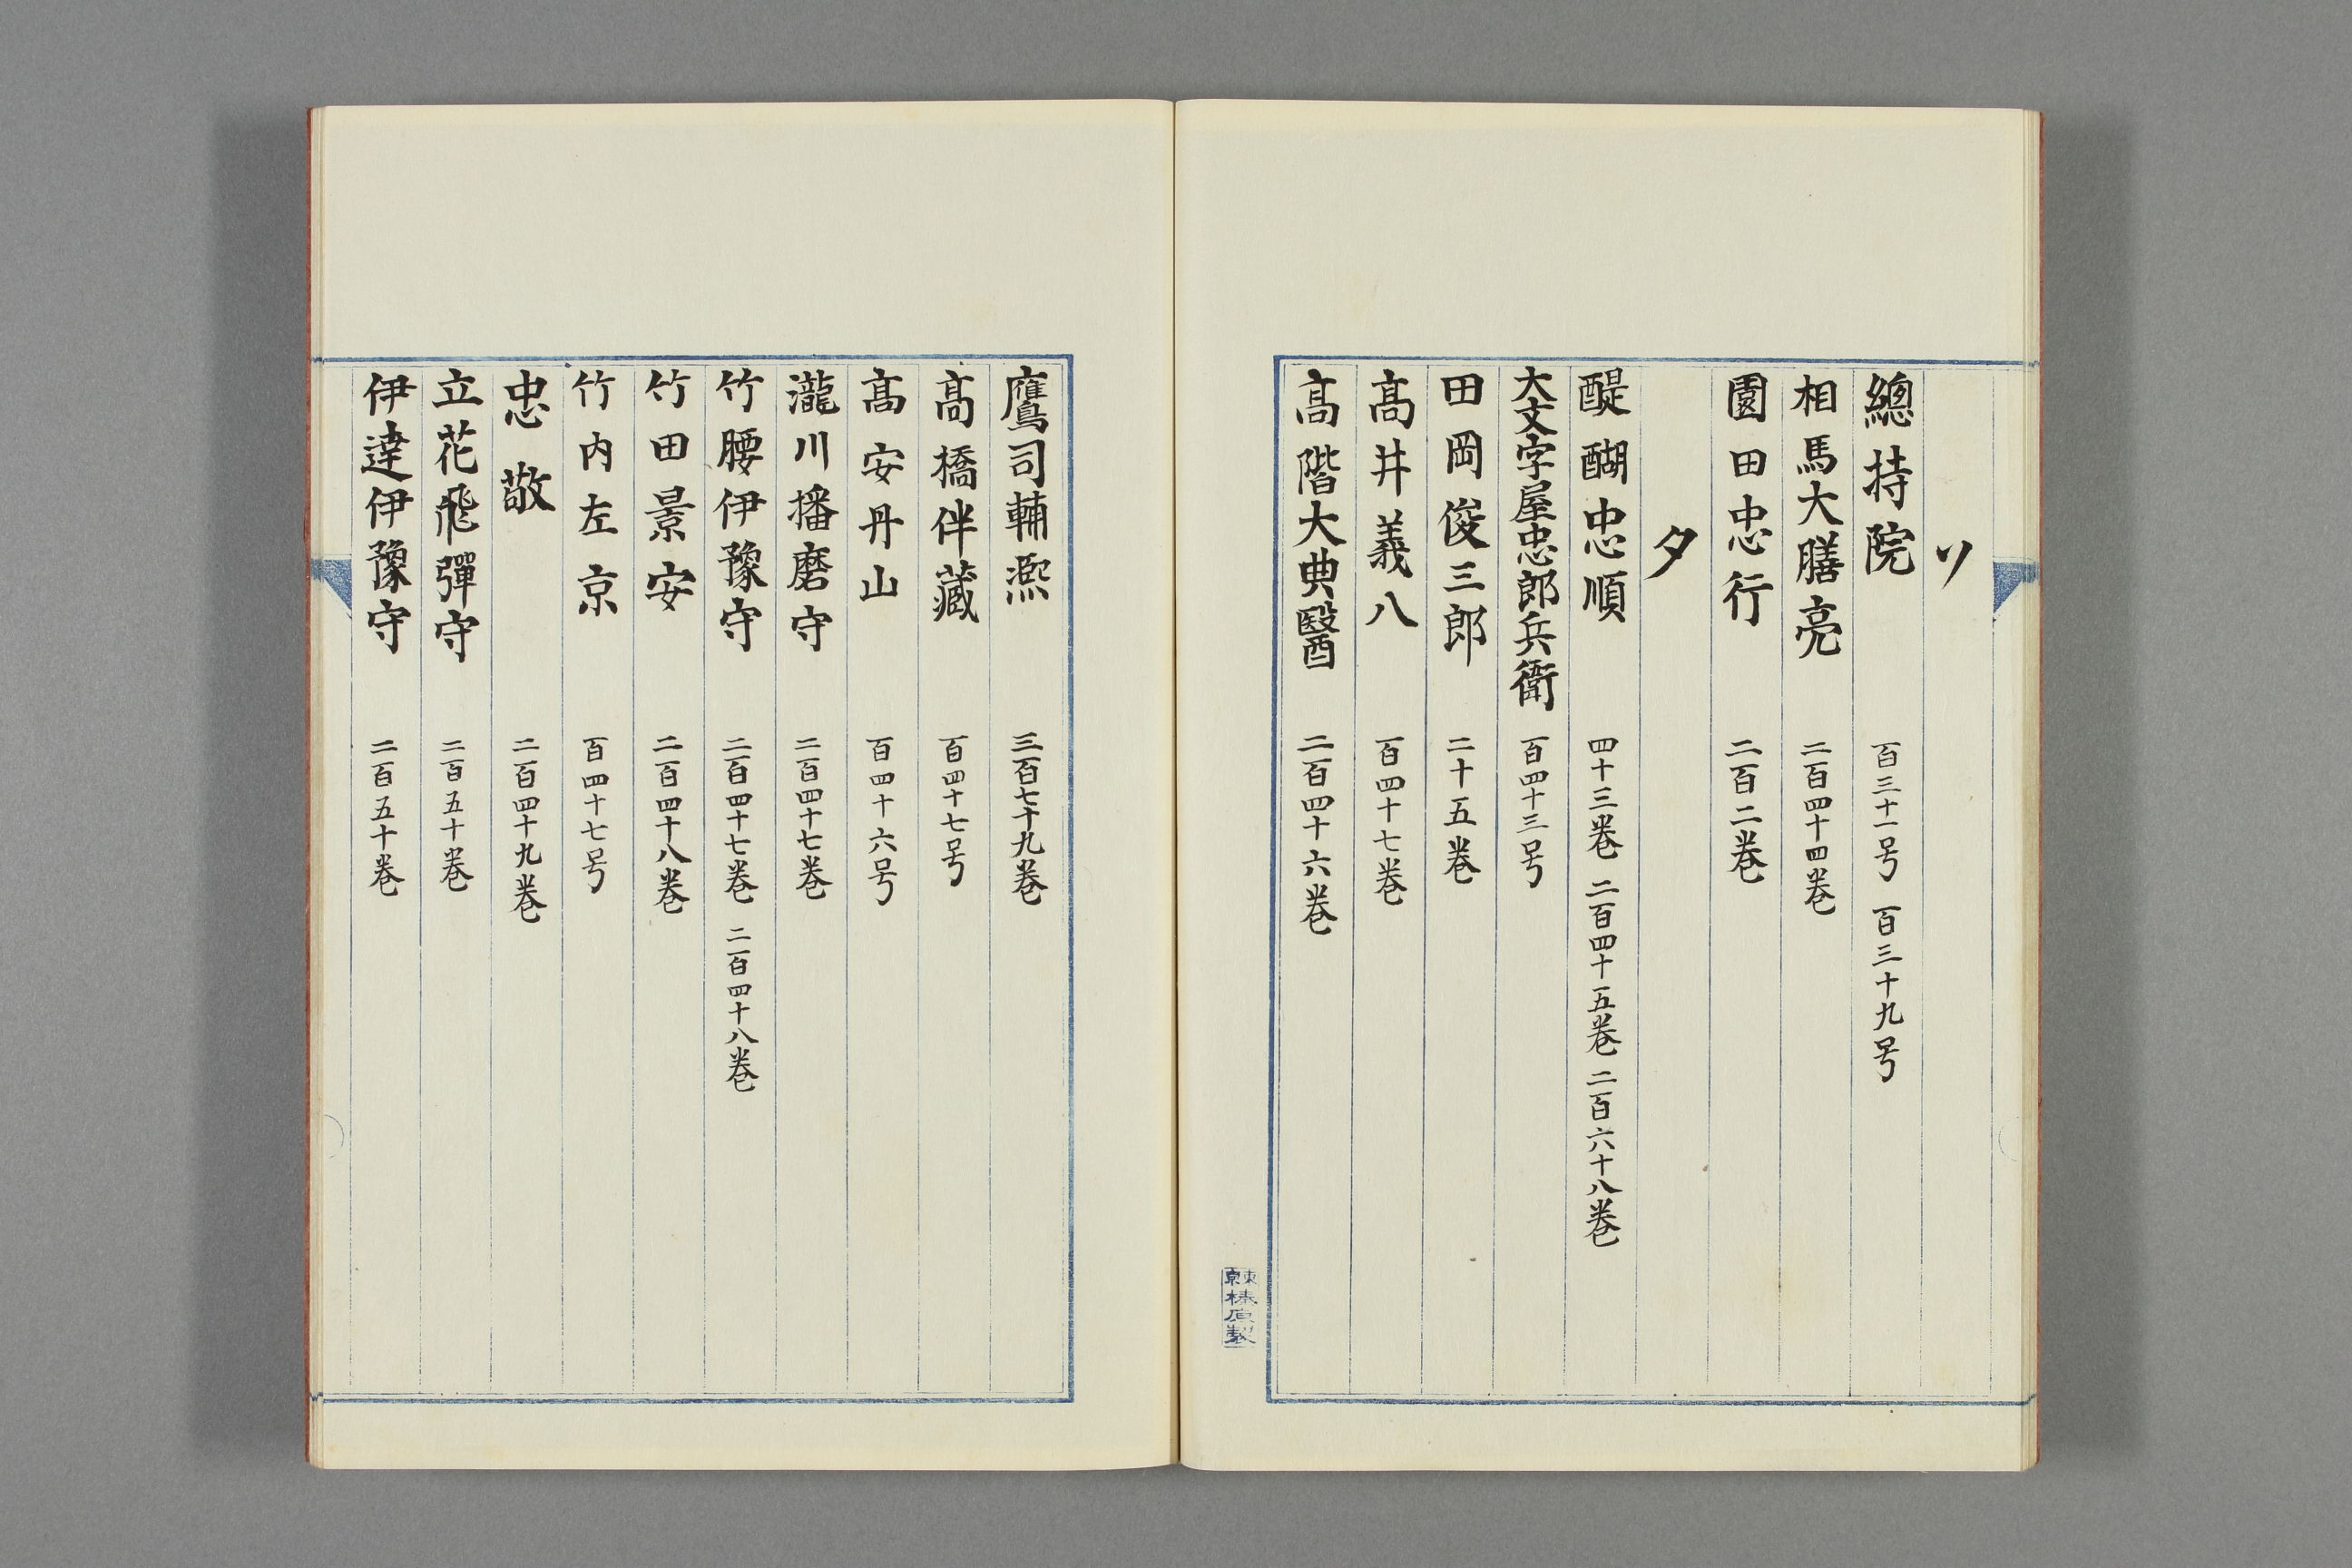 ソ
總持院　百三十一号　百三十九号
相馬大膳亮　二百四十四巻
園田忠行　二百二巻
タ
醍醐忠順　四十三巻　二百四十五巻　二百六十八巻
大文字屋忠郎兵衛　百四十三号
田岡俊三郎　二十五巻
髙井義八　百四十七巻
髙階大典醫　二百四十六巻
東京榛原製
鷹司輔熈　三百七十九巻
髙橋伴藏　百四十七号
髙安丹山　百四十六号
瀧川播磨守　二百四十七巻
竹腰伊豫守　二百四十七巻　二百四十八巻
竹田景安　二百四十八巻
竹内左京　百四十七号
忠敬　二百四十九巻
立花飛彈守　二百五十巻
伊達伊豫守　二百五十巻